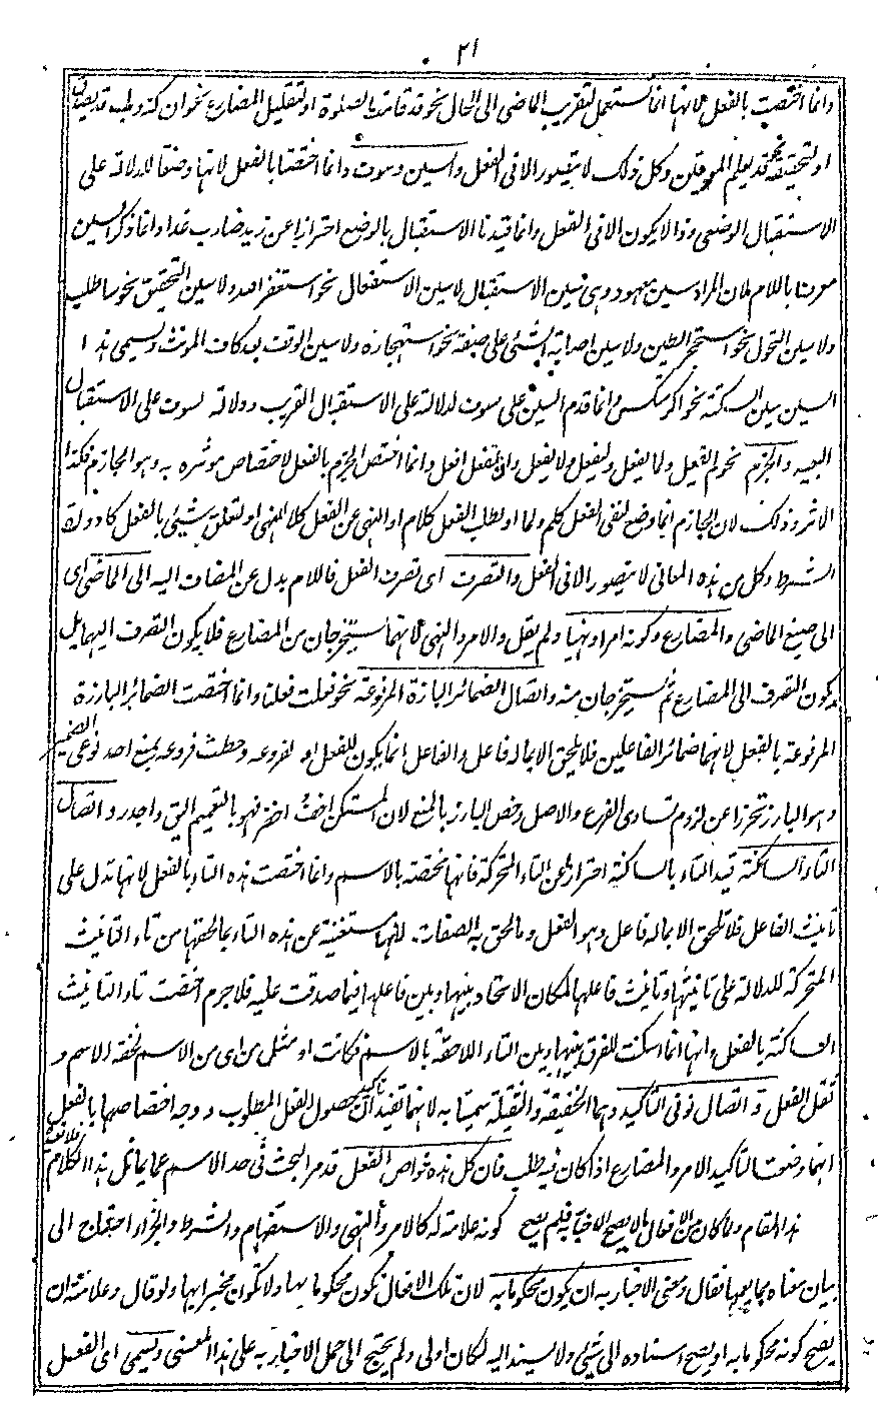 ٢١
وانما اختصت بالفعل لانها انما تستعمل لتقريب الماضى الى الحال نحو قد قامت الصلوة او لتقليل المضارع نحو ان كذوبه قد يصدق
او لتحقيقه نحو قد يعلم الله المعوقين وكل ذلك لا يتصور الا فى الفعل والسين وسوف وانما اختصتا بالفعل لانهما وضعتا للدلالة على
الاستقبال الوضعى وذا لا يكون الا فى الفعل وانما قيدنا الاستقبال بالوضع احترازا عن زيد ضارب غدا وانما ذكر السين
معرفا باللام لان المراد سين معهود وهى سين الاستقبال لا سين الاستفعال نحو استغفر الله ولا سين التحقيق نحو سأطلب
ولا سين التحول نحو استحجر الطين ولا سين اصابة الشئى على صفة نحو استجاره ولا سين الوقف بعد كاف المونث وتسمى هذا
السين سين السكتة نحو اكرمتكس وانما قدم السين على سوف لدلالته على الاستقبال القريب ودلالة سوف على الاستقبال
البعيد والجزم نحو لم يفعل ولما يفعل وليفعل ولا يفعل وان تفعل افعل وانما اختص الجزم بالفعل لاختصاص موثره به وهو الجازم فكذا
الاثر وذلك لان الجازم انما وضع لنفى الفعل كلم ولما او لطلب الفعل كلام او النهى عن الفعل كلا النهى او لتعلق شيئى بالفعل كادوات
الشرط وكل من هذه المعانى لا يتصور الا فى الفعل والتصرف اى تصرف الفعل فاللام بدل عن المضاف اليه الى الماضى اى
الى صيغ الماضى والمضارع وكونه امرا ونهيا ولم يقل والامر والنهى لانهما مستخرجان من المضارع فلا يكون التصرف اليهما بل
يكون التصرف الى المضارع ثم يستخرجان منه واتصال الضمائر البارزة المرفوعة نحو فعلت فعلنا وانما اختصت الضمائر البارزة
المرفوعة بالفعل لانها ضمائر الفاعلين فلا يلحق الا بما له فاعل والفاعل انما يكون للفعل او لفروعه وحطت فروعه بمنع احد نوعى الضمير
وهو البارز تحرزا عن لزوم تساوى الفرع والاصل وخص البارز بالمنع لان المستكن اخف اخضر فهو بالتعميم اليق واجدر واتصال
التاء الساكنة قيد التاء بالساكنة احترازا عن التاء المتحركة فانها مختصة بالاسم وانما اختصت هذه التاء بالفعل لانها تدل على
تانيث الفاعل فلا تلحق الا بما له فاعل وهو الفعل وما لحق به الصفات لانها مستغنية عن هذه التاء بما لحقها من تاء التانيث
المتحركة للدلالة على تانيثها وتانيث فاعلها لمكان الاتحاد بينها وبين فاعلها فيما صدقت عليه فلا جرم اختصت تاء التانيث
الساكنة بالفعل وانها انما اسكنت للفرق بينها وبين التاء اللاحقة بالاسم فكانت او مثل من اى من الاسم لخفة الاسم و
ثقل الفعل واتصال نونى التاكيد وهما الخفيفة والثقيلة سميتا به لانهما تفيدان تاكيد حصول الفعل المطلوب ووجه اختصاصها بالفعل
انها وضعت لتاكيد الامر والمضارع اذا كان فيه طلب فان كل هذه خواص الفعل قد مر البحث فى حد الاسم عما يماثل هذا الكلام فلا نعيده
هذا المقام ولما كان من الافعال ما لا يصح الاخبار به فلم يصح كونه علامة له كالامر والنهى والاستفهام والشرط والجزاء احتاج الى
بيان معناه بما يعمها فقال ومعنى الاخبار به ان يكون محكوما به لان تلك الافعال تكون محكوما بها ولا تكون مخبرا بها ولو قال وعلامته ان
يصح كونه محكوما به او يصح اسناده الى شيئى ولا يسند اليه لكان اولى ولم يحتج الى حمل الاخبار به على هذا المعنى وتسمى اى الفعل